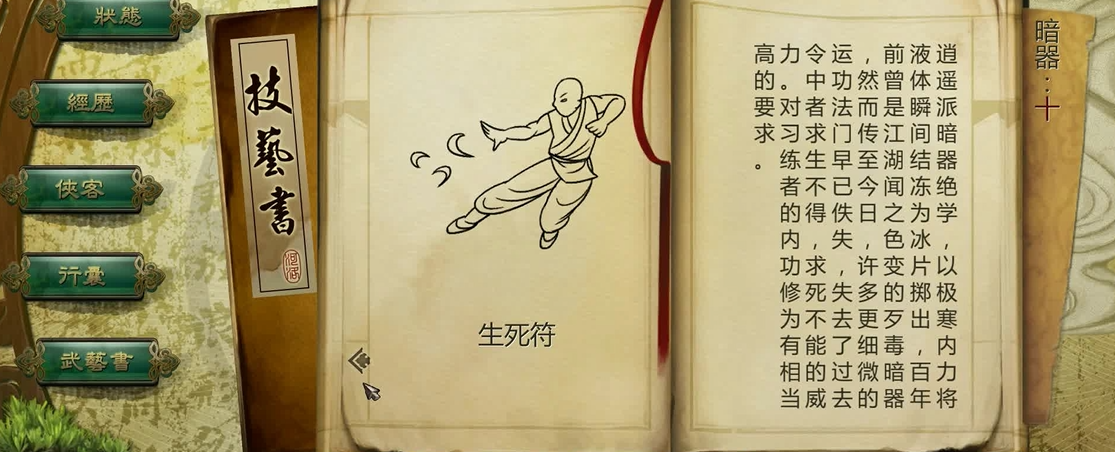 狀態
經歷
俠客
行囊
武藝書
技藝書
河洛
生死符
暗器：十
逍遥派暗器绝学，以极寒内力将
液体瞬间结冻为冰片掷出，百年
前曾是江湖闻之色变的歹毒暗器
，然而传至今日，许多更细微的
运功法门早已佚失，失去了过去
令中者求生不得，求死不能的威
力。对习练者的内功修为有相当
高的要求。